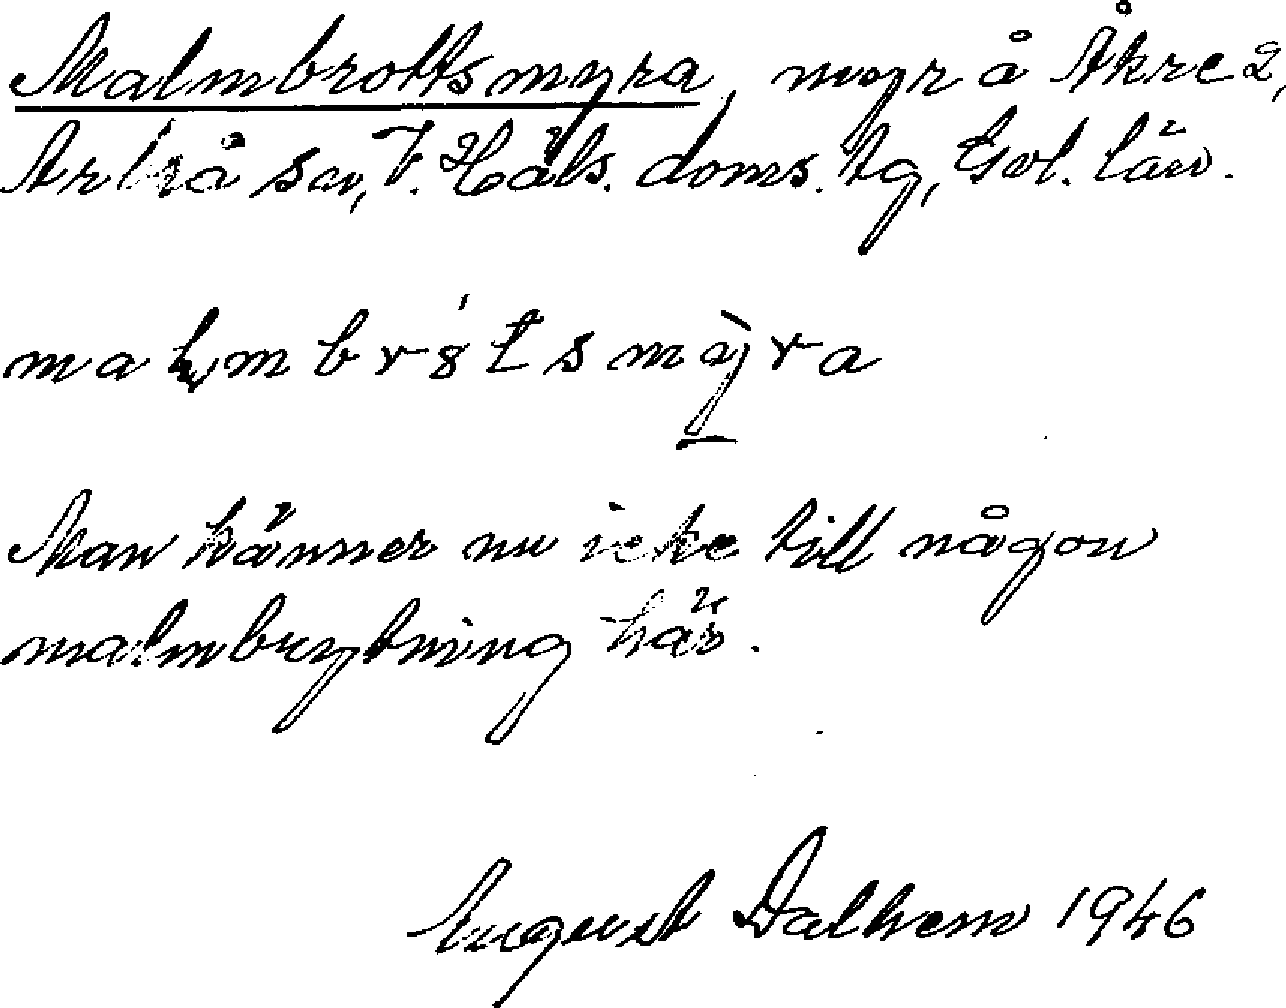 Malmbrottsmyra, myr å Åkre 2,
Arbrå sn, V. Häls. doms.tg, Gvl. län.
malmbrótsmỳra
Man känner nu icke till någon
malmbrytning här.
August Dalhem 1946